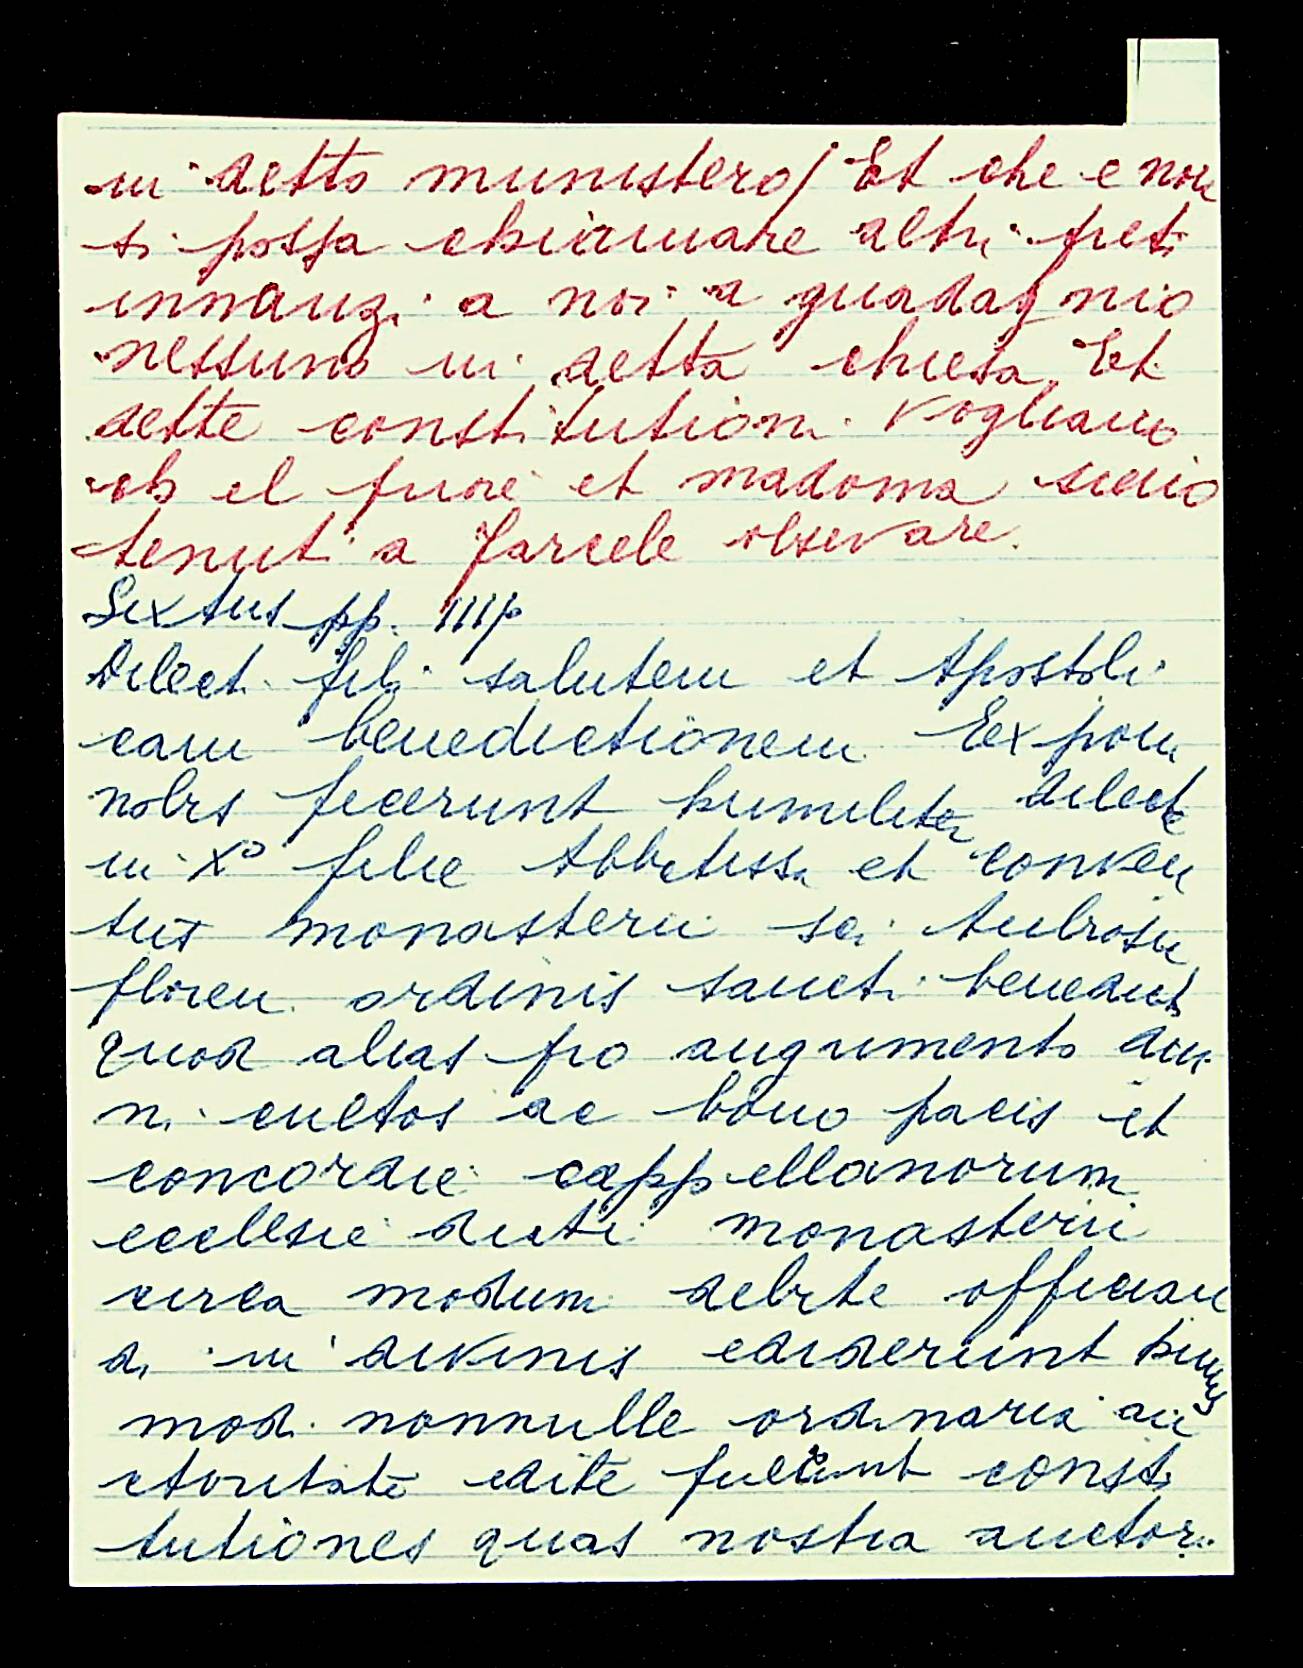 in detto munistero/ Et che e non
si possa chiamare altri preti
innanzi a noi a guadagnio
nessuno in detta chiesa Et
dette constitutioni vogliamo
ch el priore et madonna sieno
tenuti a farcele observare.
Sixtus pp. IIII°
Dilecti fili salutem et Apostoli
cam benedictionem Exponi
nobis fecerunt humiliter dilecte
in X° filie Abbatissa et conven
tus monasterii sci Ambrosii
floren. ordinis sancti benedicti
quod alias pro augumento divi
ni cultos ac bono pacis et
concordie cappellanorum
ecclesie dicti monasterii
circa modum debite offician
di in divinis ediderunt
mod. nonnulle ordinaria au
ctoritate edite fuerunt consti
tutiones quas nostra auctori